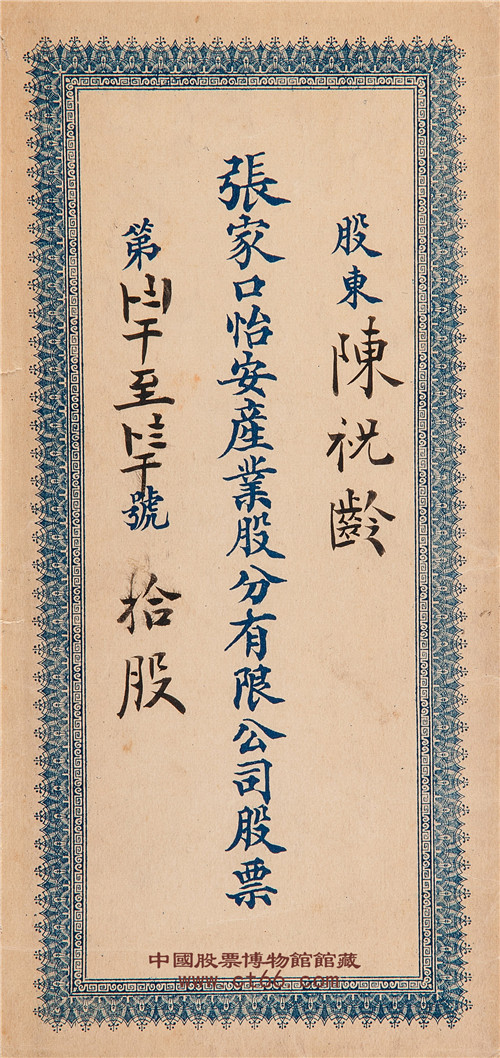 股東 陳祝齡
張家口怡安產業股分有限公司股票
第 至 號 拾股
中國股票博物館館藏
www.ct66.com